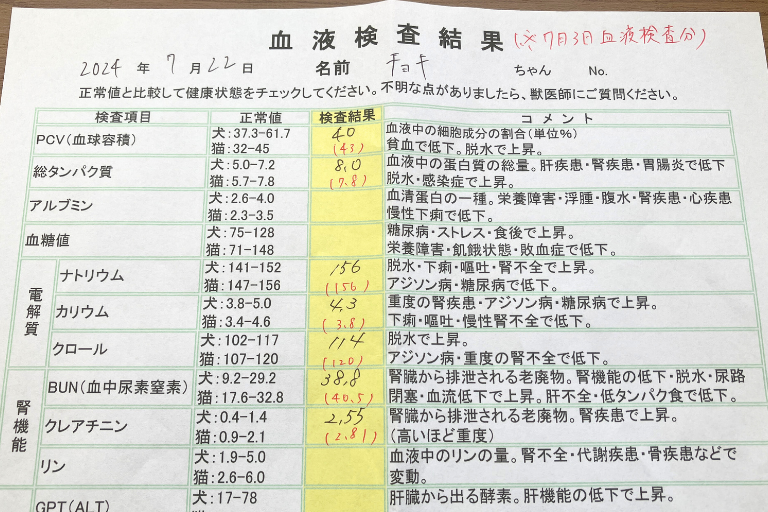 血液検査結果 (※7月3日血液検査分)
2024 年 7 月 22 日 名前 チョキ ちゃん No.
正常値と比較して健康状態をチェックしてください。不明な点がありましたら、獣医師にご質問ください。
検査項目 正常値 検査結果 コメント
PCV(血球容積) 犬:37.3-61.7 40 血液中の細胞成分の割合(単位%)
猫:32-45 (43) 貧血で低下。脱水で上昇。
総タンパク質 犬:5.0-7.2 8.0 血液中の蛋白質の総量。肝疾患・腎疾患・胃腸炎で低下
猫:5.7-7.8 (7.8) 脱水・感染症で上昇。
アルブミン 犬:2.6-4.0 血清蛋白の一種。栄養障害・浮腫・腹水・腎疾患・心疾患
猫:2.3-3.5 慢性下痢で低下。
血糖値 犬:75-128 糖尿病・ストレス・食後で上昇。
猫:71-148 栄養障害・飢餓状態・敗血症で低下。
電解質
ナトリウム 犬:141-152 156 脱水・下痢・嘔吐・腎不全で上昇。
猫:147-156 (156) アジソン病・糖尿病で低下。
カリウム 犬:3.8-5.0 4.3 重度の腎疾患・アジソン病・糖尿病で上昇。
猫:3.4-4.6 (3.8) 下痢・嘔吐・慢性腎不全で低下。
クロール 犬:102-117 114 脱水で上昇。
猫:107-120 (120) アジソン病・重度の腎不全で低下。
腎機能
BUN(血中尿素窒素) 犬:9.2-29.2 38.8 腎臓から排泄される老廃物。腎機能の低下・脱水・尿路
猫:17.6-32.8 (40.5) 閉塞・血流低下で上昇。肝不全・低タンパク食で低下。
クレアチニン 犬:0.4-1.4 2.55 腎臓から排泄される老廃物。腎疾患で上昇。
猫:0.9-2.1 (2.81) (高いほど重度)
リン 犬:1.9-5.0 血液中のリンの量。腎不全・代謝疾患・骨疾患などで
猫:2.6-6.0 変動。
GPT(ALT) 犬:17-78 肝臓から出る酵素。肝機能の低下で上昇。